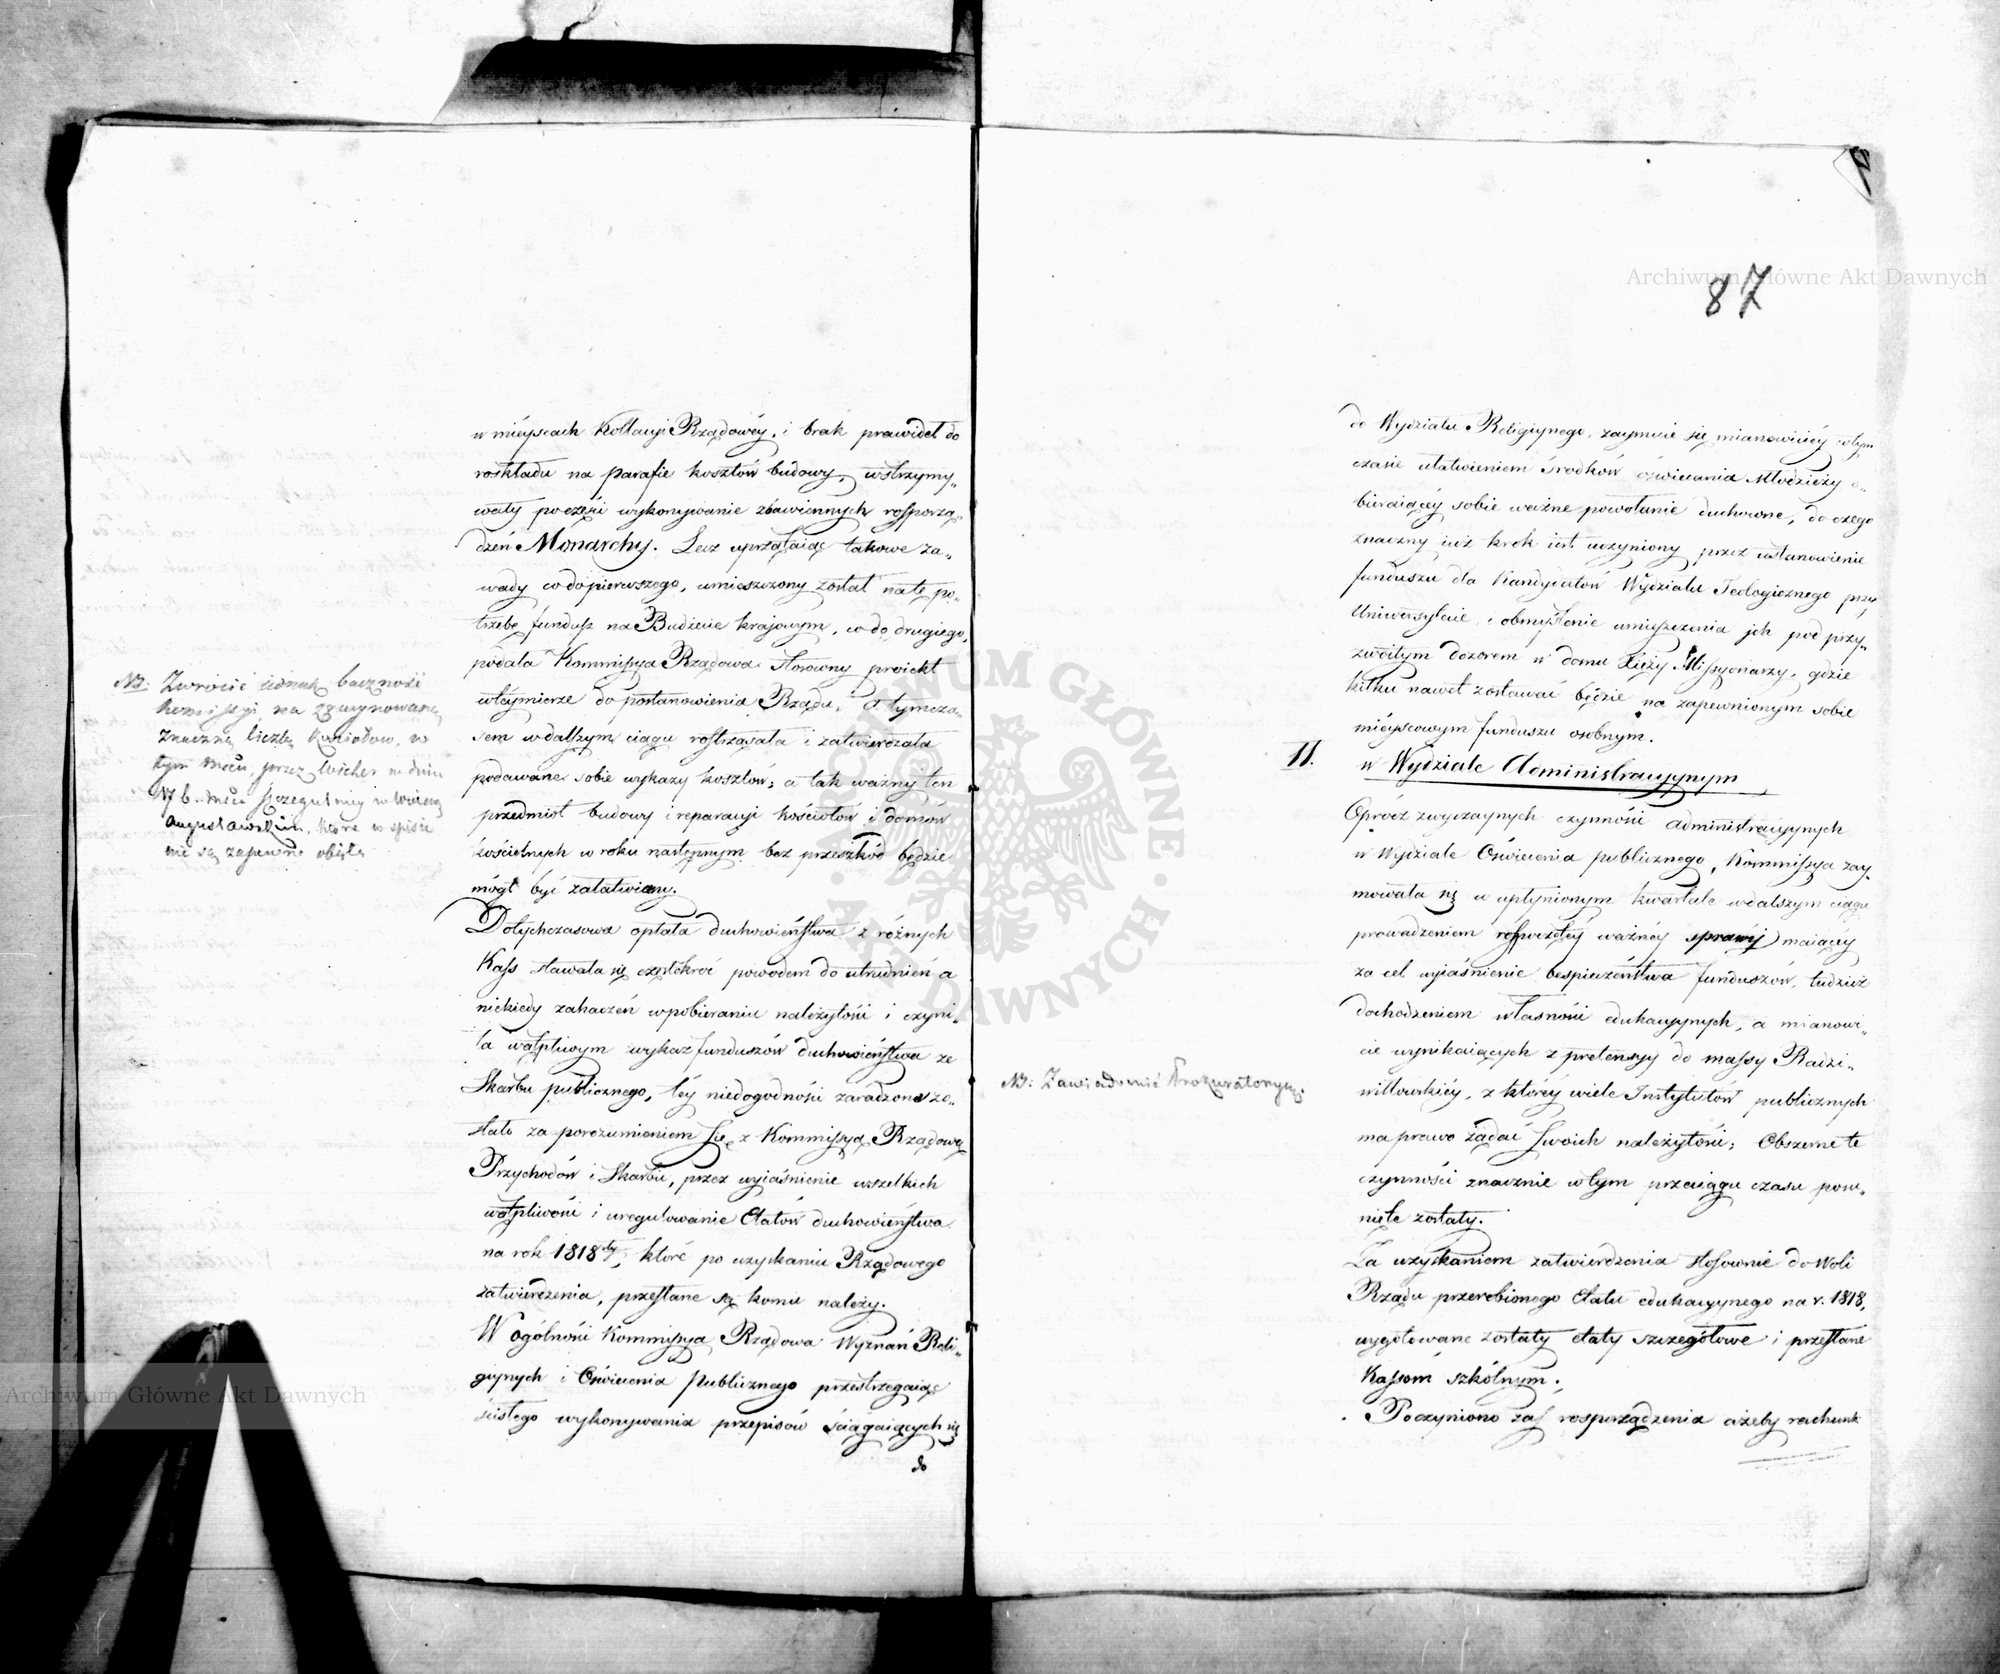 w mieyscach Kollacyi Rządowéy, i brak prawideł do
roskładu na parafie kosztów budowy, wstrzymy„
wały po części wykonywanie zbawiennych rosporzą„
dzeń Monarchy. Lecz uprzątaiąc takowe za„
wady co do pierwszego, umieszczony został na tę po„
trzebę fundusz na Budżecie krajowym, co do drugiego,
podała Kommissya Rządowa stosowny proiekt
w téymierze do postanowienia Rządu, a tymcza„
sem w dalszym ciągu rostrząsała i zatwierdzała
podawane sobie wykazy kosztów; a tak ważny ten
przedmiot budowy i reparacyi kościołów i domów
kościelnych w roku następnym bez przeszkód będzie
mógł być załatwiany.
NB: Zwrócić iednak baczność
Kommissyi na zruynowaną
znaczną liczbę Kościołów, w
tym Mcu, przez wicher w dniu
17 b. mca szczegulniey w Wdzie
Augustowskim, które w spisie
nie są zapewne obięte
Dotychczasowa opłata duchowieństwa z różnych
Kass stawała się częstokroć powodem do utrudnień a
niekiedy zahaczeń w pobieraniu należytości i czyni„
ła wątpliwym wykaz funduszów duchowieństwa ze
Skarbu publicznego, téy niedogodności zaradzono zo„
stało za porozumieniem się z Kommissyą Rządową
Przychodów i Skarbu, przez wyiaśnienie wszelkich
wątpliwości i uregulowanie Etatów duchowieństwa
na rok 1818ty, które po uzyskaniu Rządowego
zatwierdzenia, przesłane są komu należy.
W ogólności Kommissya Rządowa Wyznań Reli„
giynych i Oświecenia Publicznego przestrzegaiąc
ścisłego wykonywania przepisów ściągaiących się
do
87
do Wydziału Religiynego, zaymuie się mianowiciéy w tym
czasie ułatwieniem środków oświecania Młodzieży o„
bieraiącéy sobie ważne powołanie duchowne, do czego
znaczny iuż krok iest uczyniony przez ustanowienie
funduszu dla Kandydatów Wydziału Teologicznego przy
Uniwersytecie i obmyślenie umieszczenia ich pod przy„
zwoitym dozorem w domu Xięży Missyonarzy, gdzie
kilku nawet zostawać będzie na zapewnionym sobie
miéyscowym funduszu osobnym.
II. w Wydziale Administracyynym
Oprócz zwyczaynych czynności administracyynych
w Wydziale Oświecenia publicznego, Kommissya zay„
mowała się w upłynionym kwartale w dalszym ciągu
prowadzeniem rospoczętéy ważnéy sprawy maiącéy
za cel wyiaśnienie bespieczeństwa funduszów, tudzież
dochodzeniem własności edukacyynych, a mianowi„
cie wynikaiących z pretensyy do massy Radzi„
wiłłowskiéy, z któréy wiele Instytutów publicznych
ma prawo żądać swoich należytości; Obszerne te
czynności znacznie w tym przeciągu czasu posu„
nięte zostały.
NB: Zawiadomić Prokuratoryę.
Za uzyskaniem zatwierdzenia stosownie do Woli
Rządu przerobionego Etatu edukacyynego na r. 1818,
wygotowane zostały etaty szczegółowe i przesłane
Kassom szkólnym.
Poczyniono zaś rosporządzenia ażeby rachunk
Archiwum Główne Akt Dawnych
Archiwum Główne Akt Dawnych
ARCHIWUM GŁÓWNE · AKT DAWNYCH ·